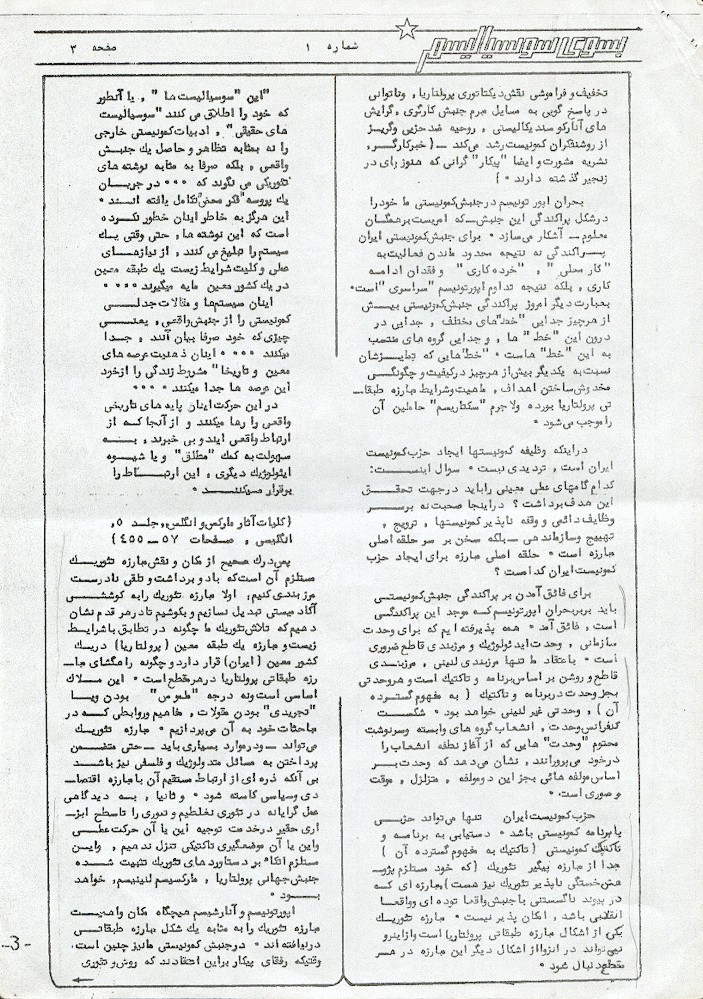 بسوی سوسیالیسم
شماره ۱
صفحه ۳
تخفیف و فراموشی نقش دیکتاتوری پرولتاریا، و ناتوانی
در پاسخ گویی به مسایل مبرم جنبش کارگری، گرایش
های آنارکو سندیکالیستی، روحیه ضد حزبی و گریز
از روشنفکران کمونیست رشد می کند ــ (خبر کارگر،
نشریه مشورت و ایضا "پیکار" گرانی که هنوز رای در
زنجیر گذشته دارند ۰ )
بحران اپورتونیسم در جنبش کمونیستی ما خود را
در شکل پراکندگی این جنبش ــ که امریست بر همگان
معلوم ــ آشکار می سازد ۰ برای جنبش کمونیستی ایران
پــراکندگی نه نتیجه محدود ماندن فعالیت به
"کار محلی"، "خرده کاری" و فقدان ادامه
کاری، بلکه نتیجه تداوم اپورتونیسم "سراسری" است۰
بعبارت دیگر امروز پراکندگی جنبش کمونیستی بیــش
از هر چیز جدایی "خط"های مختلف، جدایی در
درون این "خط" ها، و جدایی گروه های منتسب
به این "خط" هاست ۰ "خط"هایی که تمایــزشان
نسبت به یکدیگر بیش از هر چیز در کیفیت و چگونگــی
مخدوش ساختن اهداف، ماهیت و شرایط مبارزه طبقا‌ــ
تی پرولتاریا بوده و لاجرم "سکتاریسم" حاملین آن
را موجب می شود ۰
در اینکه وظیفه کمونیستها ایجاد حزب کمونیست
ایران است، تردیدی نیست ۰ سوال اینســت:
کدام گامهای عملی معینی را باید در جهت تحقــق
این هدف برداشت؟ در اینجا صحبت نه برســر
وظایف دائمی و وقفه ناپذیر کمونیستها، ترویج،
تهییج و سازماندهی ــ بلکه سخن بر سر حلقه اصلی
مبارزه است ۰ حلقه اصلی مبارزه برای ایجاد حزب
کمونیست ایران کدامست؟
برای فائق آمدن بر پراکندگی جنبش کمونیستــی
باید بر بحران اپورتونیسم کــه موجد این پراکندگــی
است، فائق آمد ۰ همه پذیرفته ایم که برای وحدت
سازمانی، وحدت ایدئولوژیک و مرزبندی قاطع ضروری
است ۰ باعتقاد ما تنها مرزبندی لنینی، مرزبنــدی
قاطع و روشن بر اساس برنامه و تاکتیک است و هر وحدتی
بجز وحدت در برنامه و تاکتیک ( به مفهوم گستــرده
آن )، وحدتی غیر لنینی خواهد بود ۰ شکست
کنفرانس وحدت، انشعاب گروه های وابسته و سرنوشت
محتوم "وحدت" هایی که از آغاز نطفه انشعاب را
در خود می پرورانند، نشان می دهد که وحدت بــر
اساس مولفه هائی بجز این دو مولفه، متزلزل، موقت
و صوری است ۰
حزب کمونیست ایران تنها می تواند حزبــی
با برنامه کمونیستی باشد ۰ دستیابی به برنامه و
تاکتیک کمونیستی ( تاکتیک به مفهوم گسترده آن )
جدا از مبارزه پیگیر تئوریک (که خود مستلزم پژو‌ــ
هش خستگی ناپذیر تئوریک نیز هست) مبارزه ای کــه
در پیوند ناگسستنی با جنبش واقعا توده ای و واقعا
انقلابی باشد، امکان پذیر نیست ۰ مبارزه تئوریــک
یکی از اشکال مبارزه طبقاتی پرولتاریا است و از اینرو
نمی تواند در انزوا از اشکال دیگر این مبارزه در هــر
مقطع دنبال شود ۰
"این "سوسیالیست ها"، یا آنطور
که خود را اطلاق می کنند "سوسیالیست
های حقیقی"، ادبیات کمونیستی خارجی
را نه بمثابه تظاهر و حاصل یک جنبــش
واقعی، بلکه صرفا به مثابه نوشته های
تئوریکی می نگرند که ۰۰۰ در جریــان
یک پروسه "فکر محض" تکامل یافته انــد ۰
این هرگز به خاطر اینان خطور نکــرده
است که این نوشته ها، حتی وقتی یــک
سیستم را تبلیغ می کنند، از نیازهــای
عملی و کلیت شرایط زیست یک طبقه معین
در یک کشور معین مایه میگیرند ۰۰۰۰
اینان سیستم ها و مقالات جدلــی
کمونیستی را از جنبش واقعی، یعنــی
چیزی که خود صرفا بیان آنند، جــدا
میکنند ۰۰۰۰ اینان ذهنیت عرصه های
معین و تاریخا" مشروط زندگی را از خود
این عرصه ها جدا میکنند ۰۰۰۰
در این حرکت اینان پایه های تاریخی
واقعی را رها میکنند و از آنجا کــه از
ارتباط واقعی ایندو بی خبرند، بــه
سهولت به کمک "مطلق" و یا شیــوه
ایدئولوژیک دیگری، این ارتبــاط را
برقرار میکننــد ۰
(کلیات آثار مارکس و انگلس، جلــد ۵،
انگلیسی، صفحات ۵۷ــ۴۵۵)
پس درک صحیح از مکان و نقش مبارزه تئوریــک
مستلزم آن است که با دو برداشت و تلقی نادرســت
مرزبندی کنیم: اولا مبارزه تئوریک را به کوششــی
آکادمیستی تبدیل نسازیم و بکوشیم تا در هر قدم نشان
دهیم که تلاش تئوریک ما چگونه در تطابق با شرایــط
زیست و مبارزه یک طبقه معین (پرولتاریا) در یــک
کشور معین (ایران) قرار دارد و چگونه راهگشای مبا‌ــ
رزه طبقاتی پرولتاریا در هر مقطع است ۰ این مــلاک
اساسی است و نه درجه "ملموس" بودن و یــا
"تجریدی" بودن مقولات، مفاهیم و روابطی کــه در
مباحثات خود به آن می پردازیم ۰ مبارزه تئوریــک
می تواند ــ و در موارد بسیاری باید ــ حتی متضمــن
پرداختن به مسائل متدولوژیک و فلسفی نیز باشــد
بی آنکه ذره ای از ارتباط مستقیم آن با مبارزه اقتصا‌ــ
دی و سیاسی کاسته شود ۰ و ثانیا، بــه دیدگاهی
عمل گرایانه در تئوری نغلطیم و تئوری را تا سطح ابز‌ــ
اری حقیر در خدمت توجیه این یا آن حرکت عملــی
و این یا آن موضعگیری تاکتیکی تنزل ندهیم، و ایــن
مستلزم اتکاء بر دستاوردهای تئوریک تثبیت شــده
جنبش جهانی پرولتاریا، مارکسیسم لنینیسم، خواهد
بــود ۰
اپورتونیسم و آنارشیسم هیچگاه مکان و اهمیــت
مبارزه تئوریک را به مثابه یک شکل مبارزه طبقاتــی
در نیافته اند ۰ در جنبش کمونیستی ما نیز چنین است۰
وقتیکه رفقای پیکار بر این اعتقادند که روش و تئوری
-3-